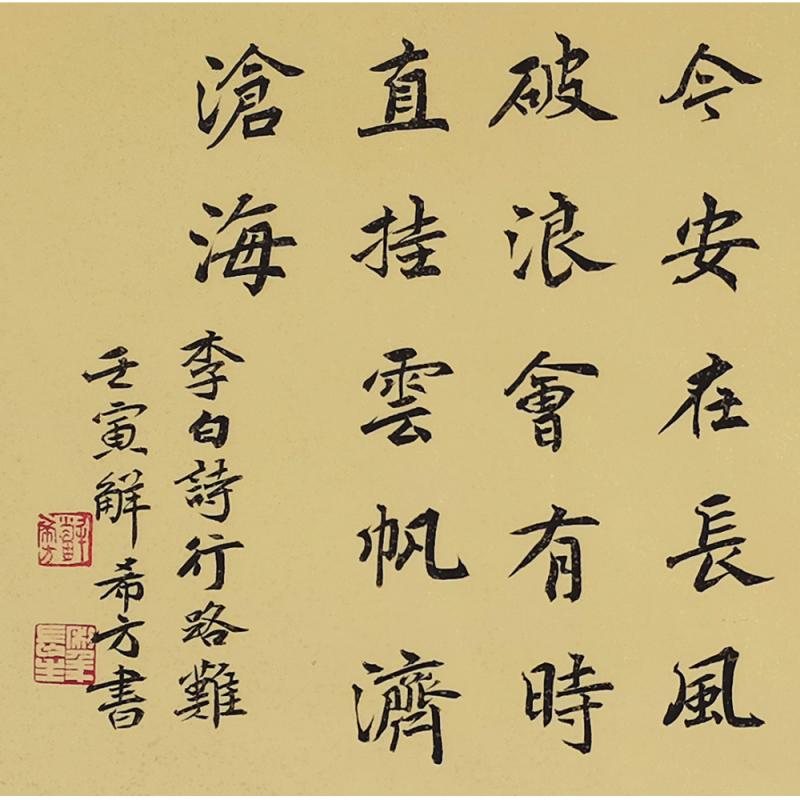 今安在長風
破浪會有時
直挂雲帆濟
滄海
李白詩行路難
壬寅解希方書